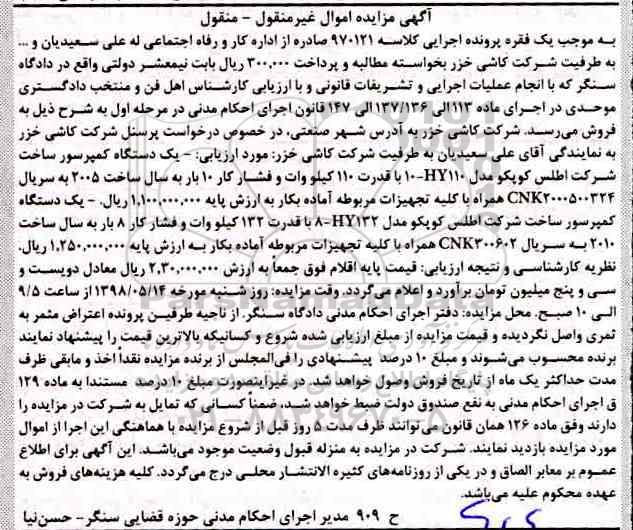 آگهی مزایده اموال غیرمنقول - منقول
به موجب یک فقره پرونده اجرایی کلاسه ۹۷۰۱۲۱ صادره از اداره کار و رفاه اجتماعی له علی سعیدیان و ...
به طرفیت شرکت کاشی خزر بخواسته مطالبه و پرداخت ۳۰۰,۰۰۰ ریال بابت نیمعشر دولتی واقع در دادگاه
سنگر که با انجام عملیات اجرایی و تشریفات قانونی و با ارزیابی کارشناس اهل فن و منتخب دادگستری
موحدی در اجرای ماده ۱۱۳ الی ۱۳۷/۱۳۶ الی ۱۴۷ قانون اجرای احکام مدنی در مرحله اول به شرح ذیل به
فروش می‌رسد. شرکت کاشی خزر به آدرس شهر صنعتی، در خصوص درخواست پرسنل شرکت کاشی خزر
به نمایندگی آقای علی سعیدیان به طرفیت شرکت کاشی خزر: مورد ارزیابی: - یک دستگاه کمپرسور ساخت
شرکت اطلس کوپکو مدل HY۱۱۰-۱۰ با قدرت ۱۱۰ کیلو وات و فشار کار ۱۰ بار به سال ساخت ۲۰۰۵ به سریال
CNK۲۰۰۰۵۰۰۳۲۴ همراه با کلیه تجهیزات مربوطه آماده بکار به ارزش پایه ۱,۱۰۰,۰۰۰,۰۰۰ ریال. - یک دستگاه
کمپرسور ساخت شرکت اطلس کوپکو مدل HY۱۳۲-۸ با قدرت ۱۳۲ کیلو وات و فشار کار ۸ بار به سال ساخت
۲۰۱۰ به سریال CNK۳۰۰۶۰۲ همراه با کلیه تجهیزات مربوطه آماده بکار به ارزش پایه ۱,۲۵۰,۰۰۰,۰۰۰ ریال.
نظریه کارشناسی و نتیجه ارزیابی: قیمت پایه اقلام فوق جمعاً به ارزش ۲,۳۰,۰۰۰,۰۰۰ ریال معادل دویست و
سی و پنج میلیون تومان برآورد و اعلام می‌گردد. وقت مزایده: روز شنبه مورخه ۱۳۹۸/۰۵/۱۴ از ساعت ۹/۵
الی ۱۰ صبح. محل مزایده: دفتر اجرای احکام مدنی دادگاه سنگر. از ناحیه طرفین پرونده اعتراض مثمر به
ثمری واصل نگردیده و قیمت مزایده از مبلغ ارزیابی شده شروع و کسانیکه بالاترین قیمت را پیشنهاد نمایند
برنده محسوب می‌شوند و مبلغ ۱۰ درصد پیشنهادی را فی‌المجلس از برنده مزایده نقداً اخذ و مابقی ظرف
مدت حداکثر یک ماه از تاریخ فروش وصول خواهد شد. در غیراینصورت مبلغ ۱۰ درصد مستندا به ماده ۱۲۹
ق اجرای احکام مدنی به نفع صندوق دولت ضبط خواهد شد، ضمناً کسانی که تمایل به شرکت در مزایده را
دارند وفق ماده ۱۲۶ همان قانون می‌توانند ظرف مدت ۵ روز قبل از شروع مزایده با هماهنگی این اجرا از اموال
مورد مزایده بازدید نمایند. شرکت در مزایده به منزله قبول وضعیت موجود می‌باشد. این آگهی برای اطلاع
عموم بر معابر الصاق و در یکی از روزنامه‌های کثیره الانتشار محلی درج می‌گردد. کلیه هزینه‌های فروش به
عهده محکوم علیه می‌باشد.
ح ۹۰۹ مدیر اجرای احکام مدنی حوزه قضایی سنگر - حسن‌نیا